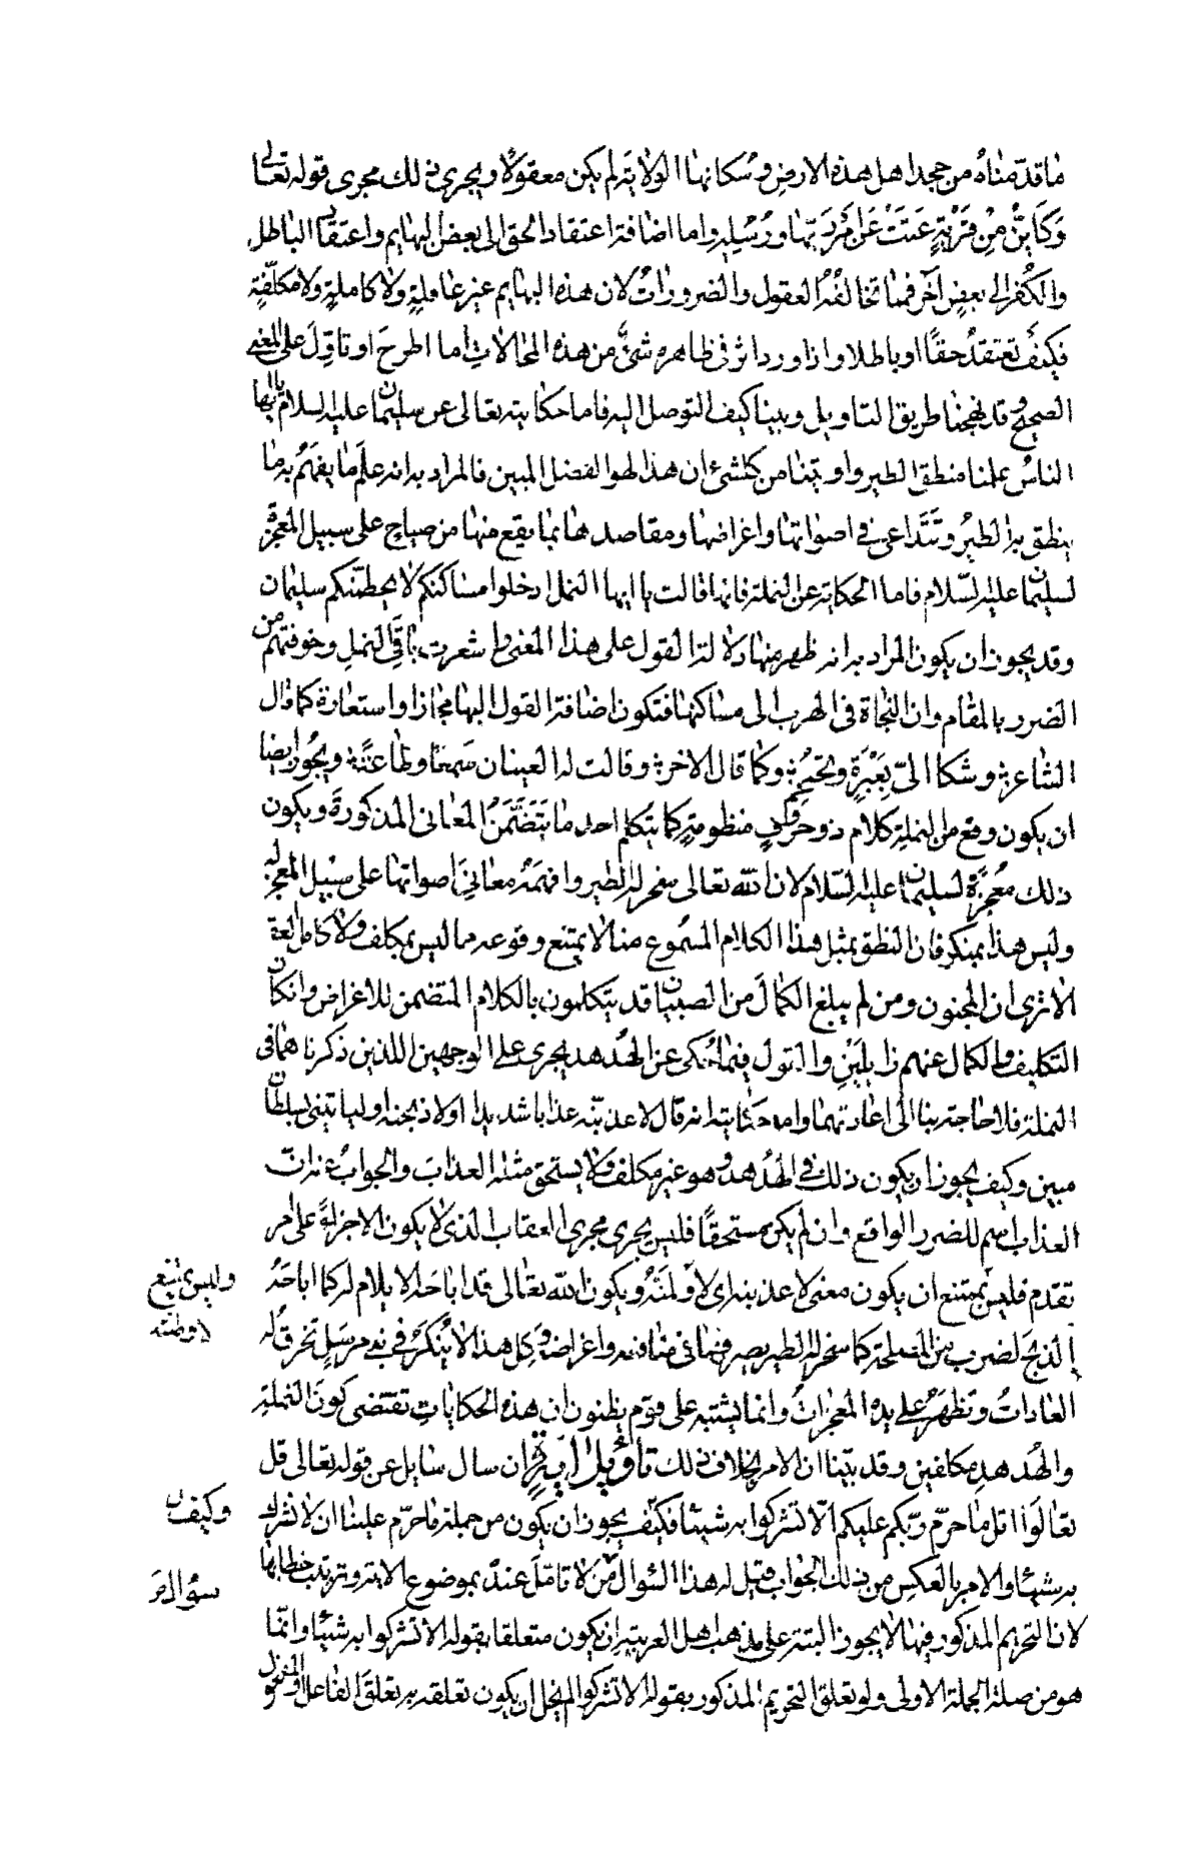 ما قدمناه من جحد اهل هذه الارض وسكانها الولاية لم يكن معقولا ويجرى ذلك مجرى قوله تعالى
وَكَايِّنْ مِنْ قَرْيَةٍ عَتَتْ عَنْ اَمْرِ رَبِّها ورُسُلِه واما اضافة اعتقاد الحق الى بعض البهايم واعتقاد الباطل
والكُفر الى بعضٍ آخَر فمما تخالفُهُ العقول والضروراتُ لان هذه البهايم غير عاقلةٍ ولا كاملةٍ ولا مكلّفةٍ
فكيف تعتقدُ حقًّا او باطلا واذا ورد اثر فى ظاهره شئٌ من هذه المحالاتِ اما اطرح او تاوّل على المعنى
الصحيح وقد نهجنا طريق التاويل وبينا كيف التوصل اليه فاما حكايته تعالى عن سليمان عليه السلام يا ايها
الناس علمنا منطق الطير واوتينا من كل شئ ان هذا لهو الفضل المبين فالمراد به انه علم ما يفهم به ما
ينطق به الطيرُ وتَتَداعى فى اصواتها واغراضها ومقاصدها بما يقع منها من صياحٍ على سبيل المعجزة
لسليمان عليه السّلام فاما الحكاية عن النملة فانها قالت يا ايها النمل ادخلوا مساكنكم لا يحطمنكم سليمان
وقد يجوز ان يكون المراد به انه ظهر منها دلالة القول على هذا المعنى واشعرت باقى النمل وخوفتهم من
الضرر بالمقام وان النجاة فى الهرب الى مساكنها فتكون اضافة القول اليها مجازا واستعارة كما قال
الشاعر وشكا الىّ بِعَبْرَةٍ وتحمحم وكما قال الاخر وقالت له العينان سَمعًا وطاعةً ويجوز ايضا
ان يكون وقع من النملة كلام ذو حروف منظومة كما يتكلم احدنا يَتَضَمَنُ المعانى المذكورة ويكون
ذلك مُعْجِزةً لسليمان عليه السّلام لان اللّه تعالى سخر له الطير وافهمَهُ معانىَ اصواتها على سبيل المعجز له
وليس هذا بمنكر فان النطق بمثل هذا الكلام المسموع منا لا يمتنع وقوعه مما ليس بمكلف ولا كامل العقل
الا ترى ان المجنون ومن لم يبلغ الكمال من الصبيان قد يتكلمون بالكلام المتضمن للاغراض وان كان
التكليف والكمال عنهم زايلَيْنِ والقول فيما حُكى عن الهدهد يجرى على الوجهين اللذين ذكرناهما فى
النملة فلا حاجة بنا الى اعادتهما واما حكايته انه قال لاعذبنّه عذابا شديدا او لاذبحنه او لياتينى بسلطان
مبين وكيف يجوز ان يكون ذلك فى الهُدهد وهو غير مكلف ولا يستحق مثله العذابَ والجوابُ عنه انّ
العذاب اسم للضرر الواقع وان لم يكن مستحقًا فليس يجرى مجرى العقاب الذى لا يكون الا جزاءً على امر
تقدم فليس بممتنع ان يكون معنى لاعذبنه اى لاُولمَنّهُ ويكون اللّه تعالى قد اباحَه الايلام له كما اباحَهُ
الذبحَ لضرب من المصلحة كما سخر له الطير يصرفها فى منافعه واغراضه وكل هذا لا يُنكر فى نبى مرسَلٍ تخرق له
العاداتُ وتظهَرُ على يده المعجزاتُ وانما يشتبه على قوم يظنون ان هذه الحكاياتِ تقتضى كونَ النملةِ
والهُدهدِ مكلفين وقد بيّنا ان الامر بخلاف ذلك تأويل آية قرآن سال سايل عن قوله تعالى قل
تعالَوا اتل ما حرّم ربّكم عليكم الّا تشركوا به شيئا فكيف يجوز ان يكون من جملة ما حرّم علينا ان لا نشرك
به شيئا والامر بالعكس من ذلك الجواب قيل له هذا السُوال مَنْ لا تامّلَ عنده بموضوع الاية وترتيب خطابها
لان التحريم المذكور فيها لا يجوز البتة على مذهب اهل العربية ان يكون متعلقا بقوله الا تشركوا به شيئا وانّما
هو من صلة الجملة الاولى ولو تعلق التحريم المذكور بقوله الا تشركوا لم يخل ان يكون تعلقه به تعلقَ الفاعل او المفعول
وليس يمتنع
وكيف
سُوال مَن